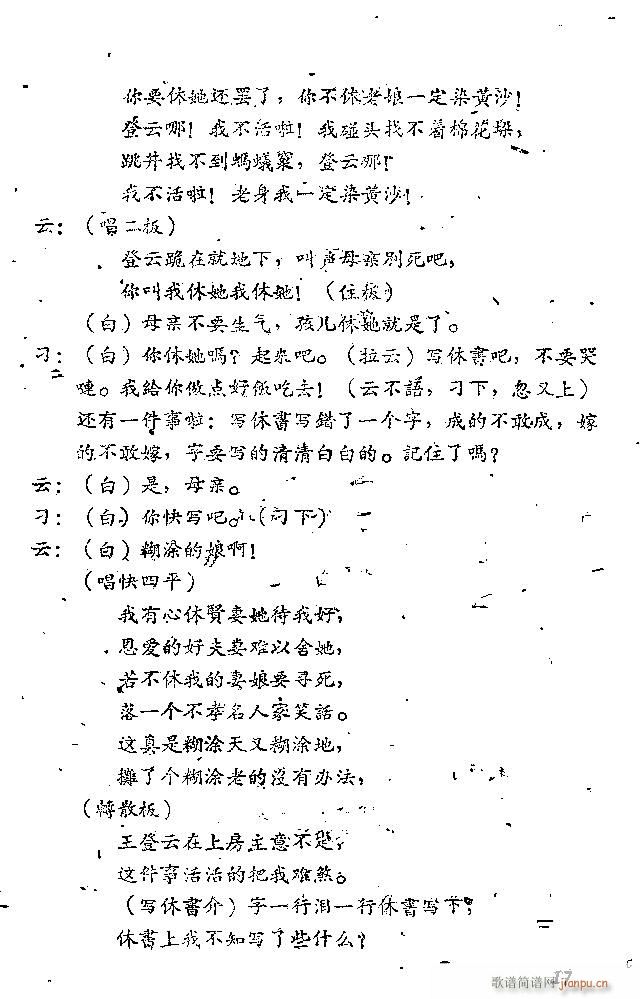 你要休她还罢了，你不休老娘一定染黄沙！
登云哪！我不活啦！我碰头找不着棉花垛，
跳井找不到螞蟻窠，登云哪！
我不活啦！老身我一定染黄沙！
云：（唱二板）
登云跪在就地下，叫声母亲别死吧，
你叫我休她我休她！（住板）
（白）母亲不要生气，孩儿休她就是了。
刁：（白）你休她嗎？起来吧。（拉云）写休書吧，不要哭
嗹。我給你做点好飯吃去！（云不語，刁下，忽又上）
还有一件事啦：写休書写錯了一个字，成的不敢成，嫁
的不敢嫁，字要写的清清白白的。記住了嗎？
云：（白）是，母亲。
刁：（白）你快写吧。（刁下）
云：（白）糊涂的娘啊！
（唱快四平）
我有心休賢妻她待我好，
恩爱的好夫妻难以舍她，
若不休我的妻娘要寻死，
落一个不孝名人家笑話。
这真是糊涂天又糊涂地，
攤了个糊涂老的沒有办法，
（轉散板）
王登云在上房主意不定，
这件事活活的把我难煞。
（写休書介）字一行泪一行休書写下，
休書上我不知写了些什么？
17
歌谱简谱网
jianpu.cn